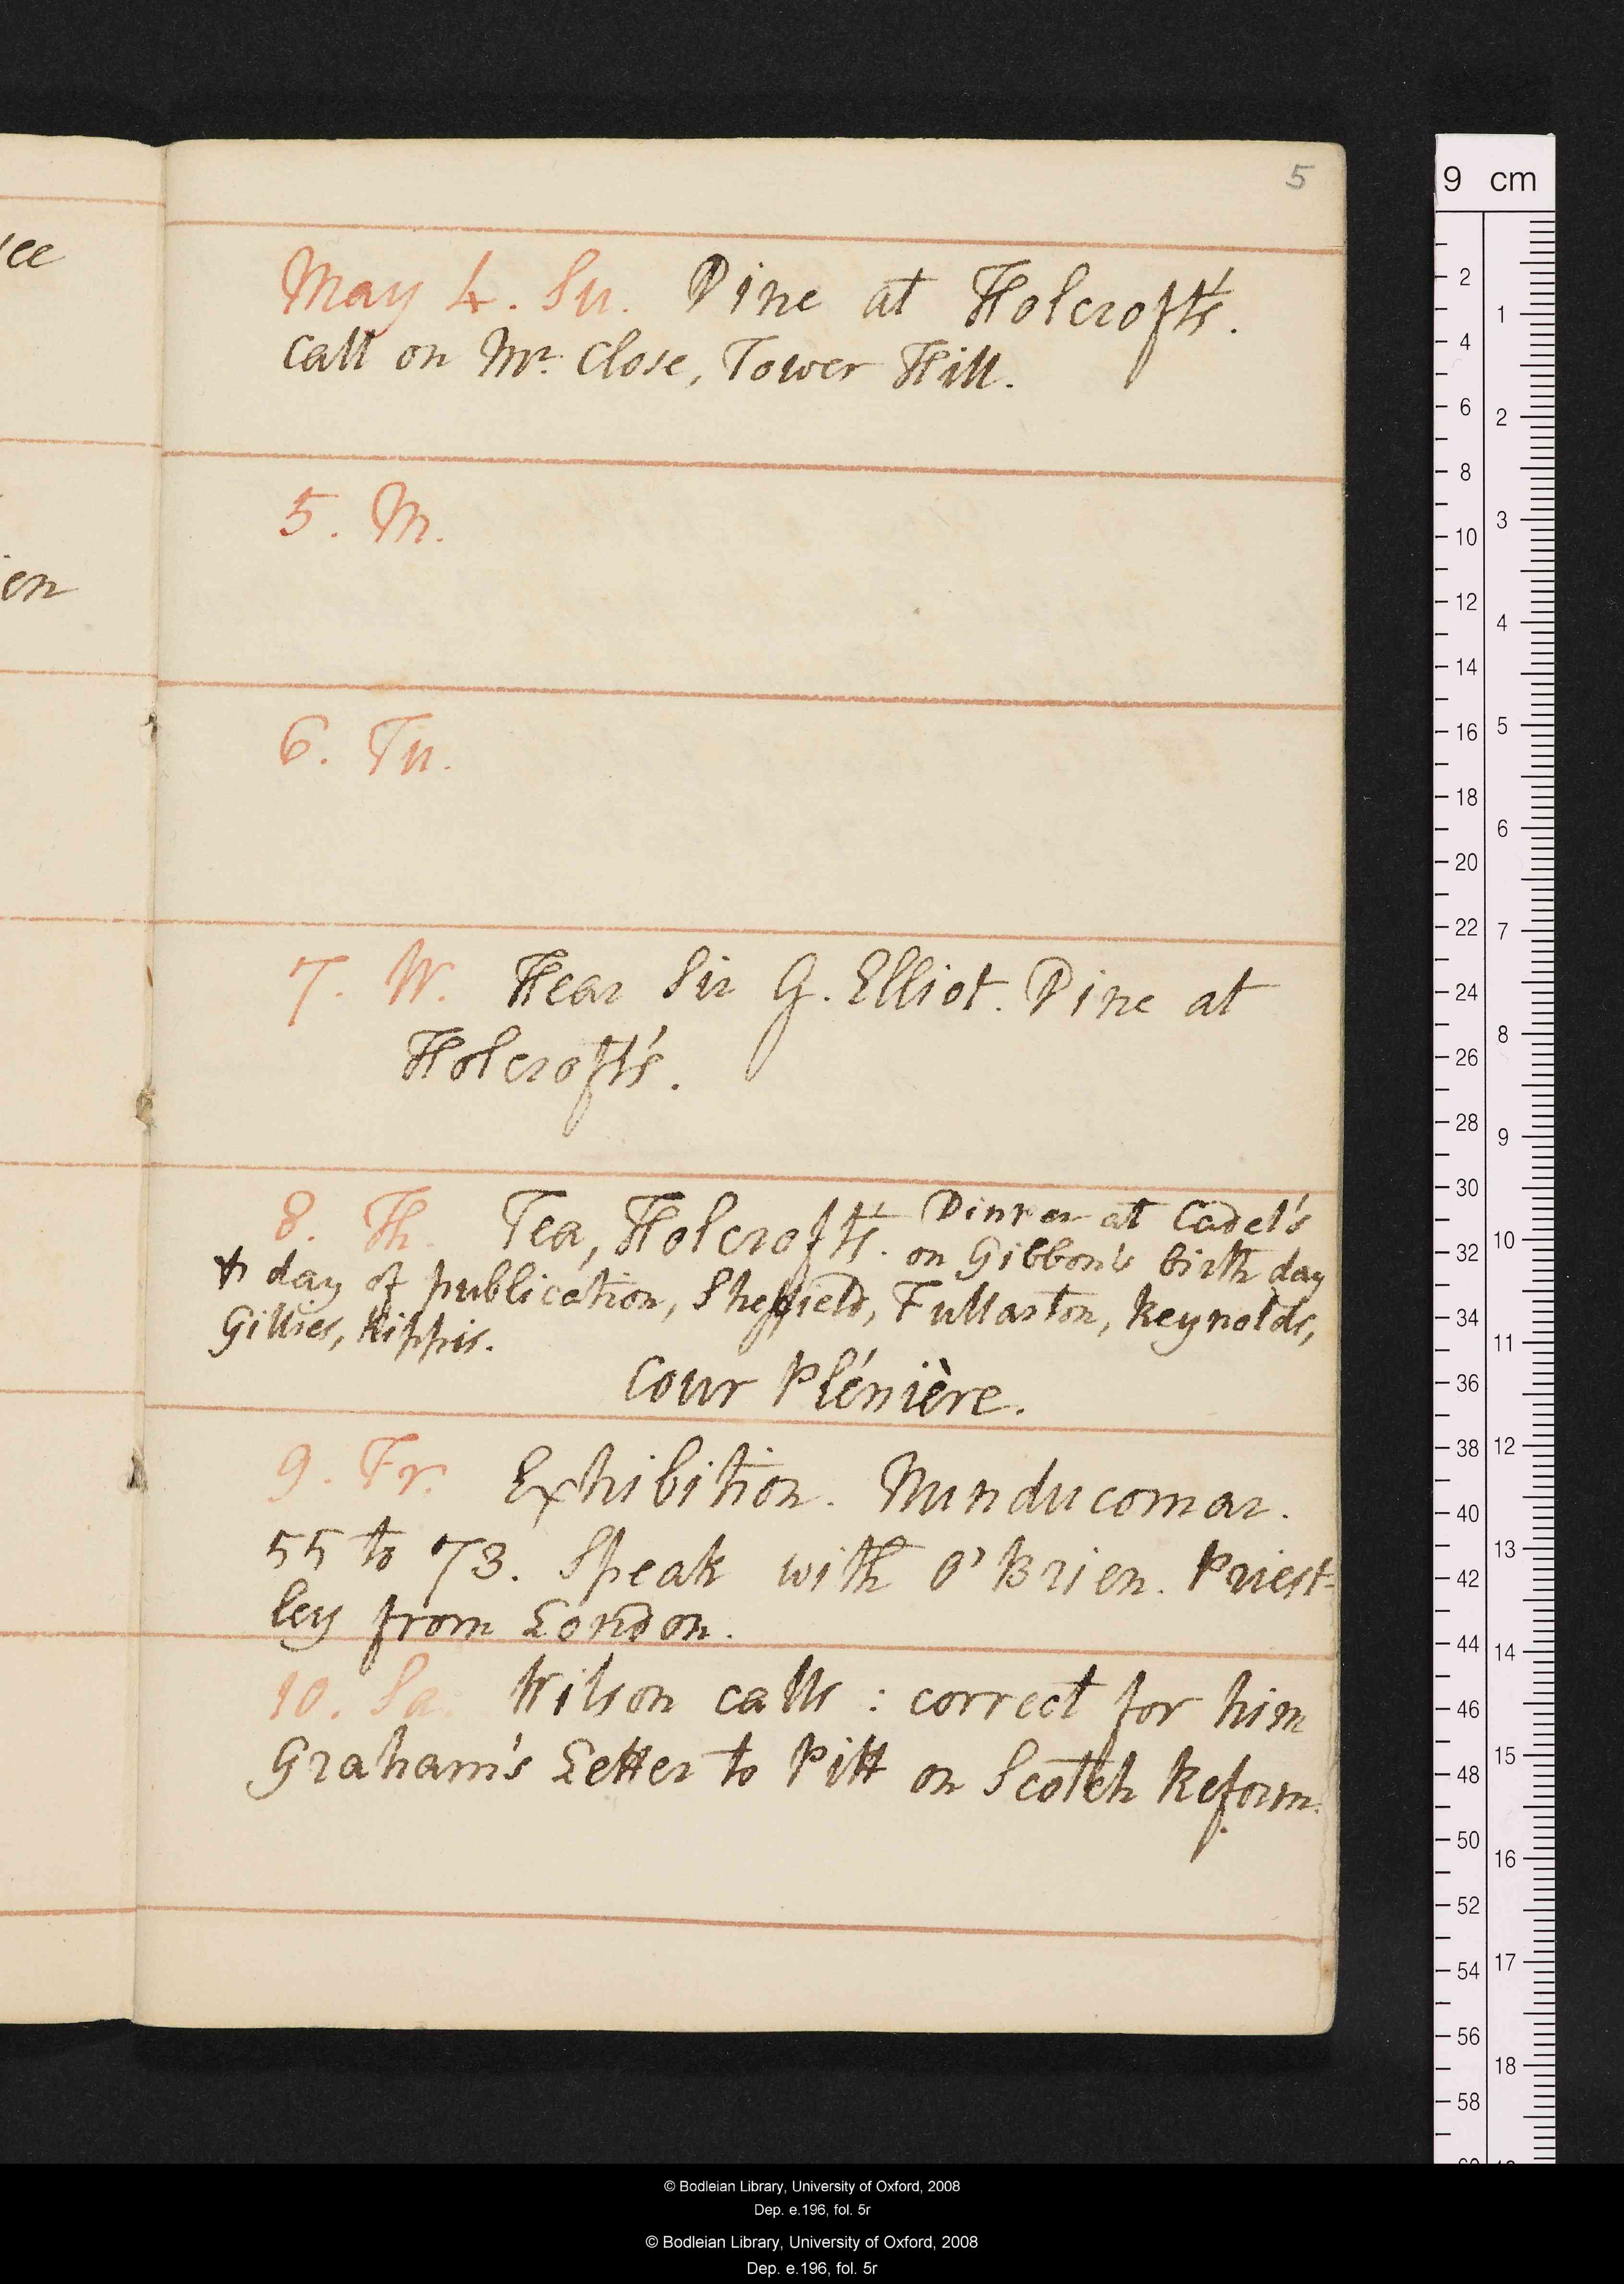 ee
en
5
May 4. Su. Dine at Holcroft's.
call on Mr. Close, Tower Hill.
5. M.
6. Tu.
7. W. Hear Sir G. Elliot. Dine at
Holcroft's.
8. Th. Tea, Holcroft's. Dinner at Cadel's
on Gibbon's birth day
& day of publication, Sheffield, Fullarton, Reynolds,
Gillies, Kippis.
Cour Plénière.
9. Fr. Exhibition. Nunducomar.
55 to 73. Speak with O'Brien. Priest-
ley from London.
10. Sa. Wilson calls : correct for him
Graham's Letter to Pitt on Scotch Reform.
9 cm
2
4
6
8
10
12
14
16
18
20
22
24
26
28
30
32
34
36
38
40
42
44
46
48
50
52
54
56
58
1
2
3
4
5
6
7
8
9
10
11
12
13
14
15
16
17
18
© Bodleian Library, University of Oxford, 2008
Dep. e.196, fol. 5r
© Bodleian Library, University of Oxford, 2008
Dep. e.196, fol. 5r